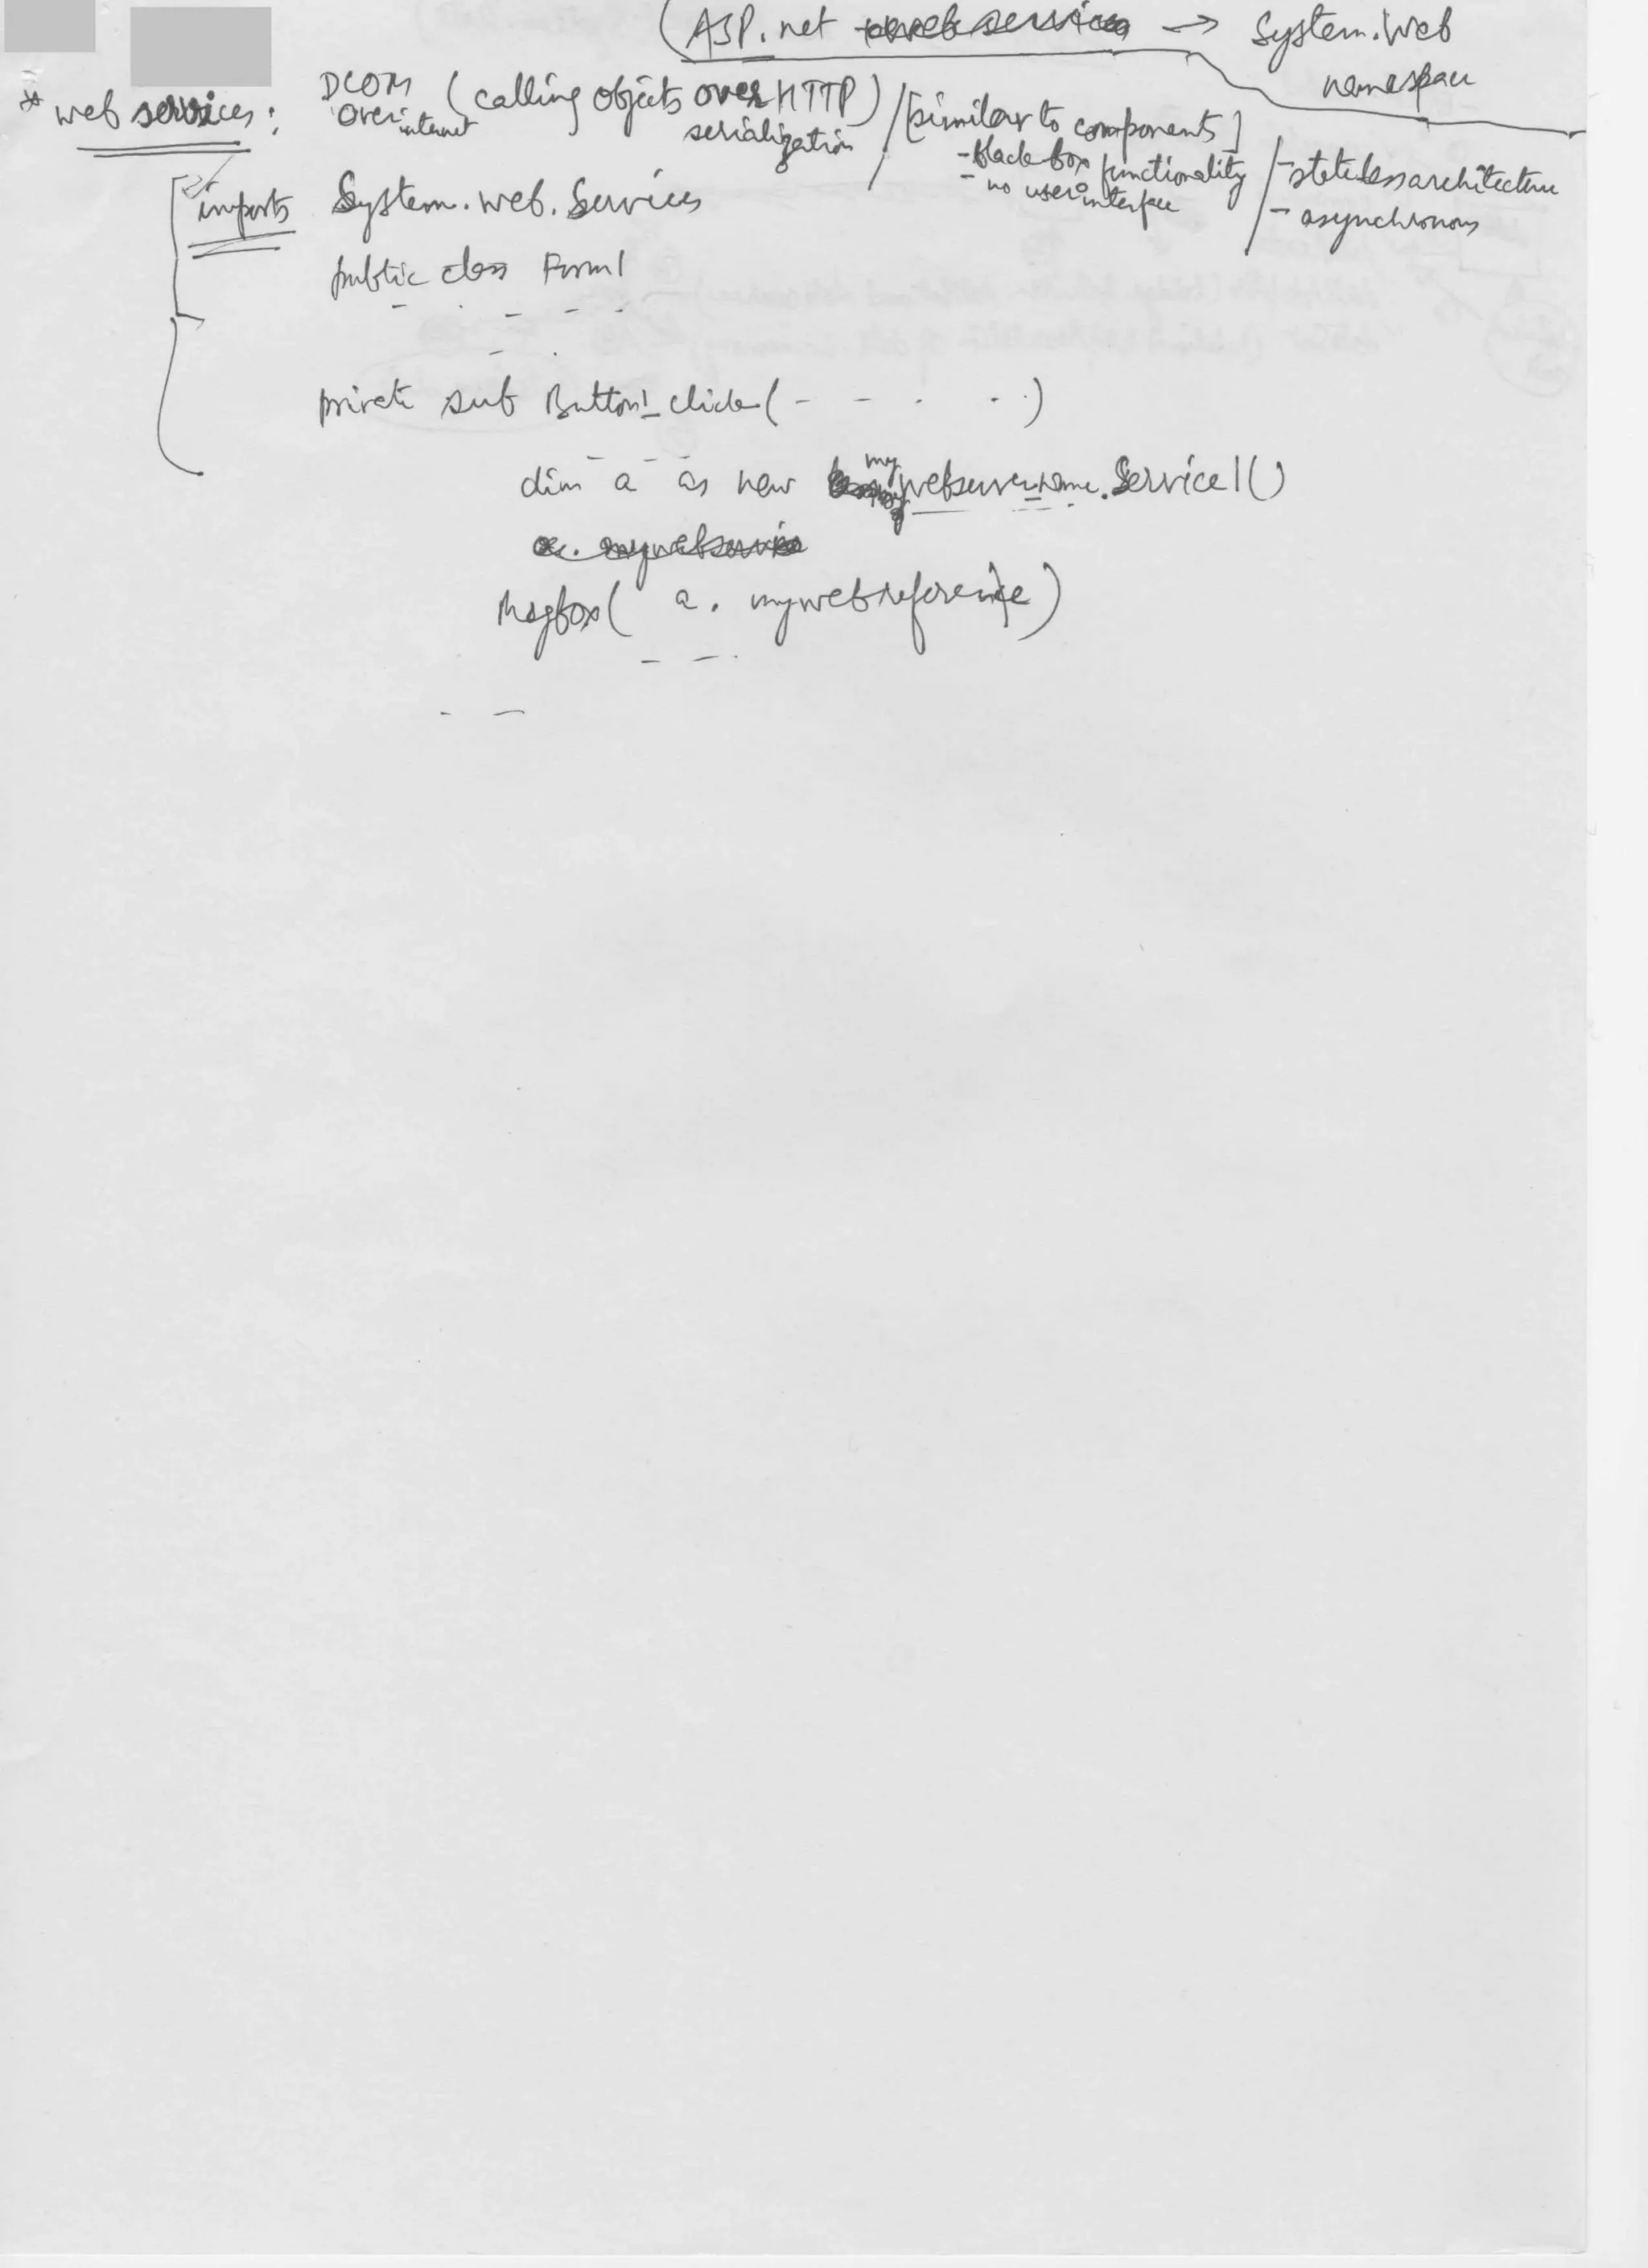 (ASP.net web services → System.Web
namespace
* web services : DCOM over internet (calling objects over HTTP) serialization / [similar to components] - black box functionality - no user interface / - stateless architecture - asynchronous
imports System.web.Services
public class Form1
- . - - .
- .
private sub Button1_click(- - . . .)
- - -
dim a as new mywebservername.Service1()
a. mywebservice
Msgbox( a. mywebreference)
- - .
- -